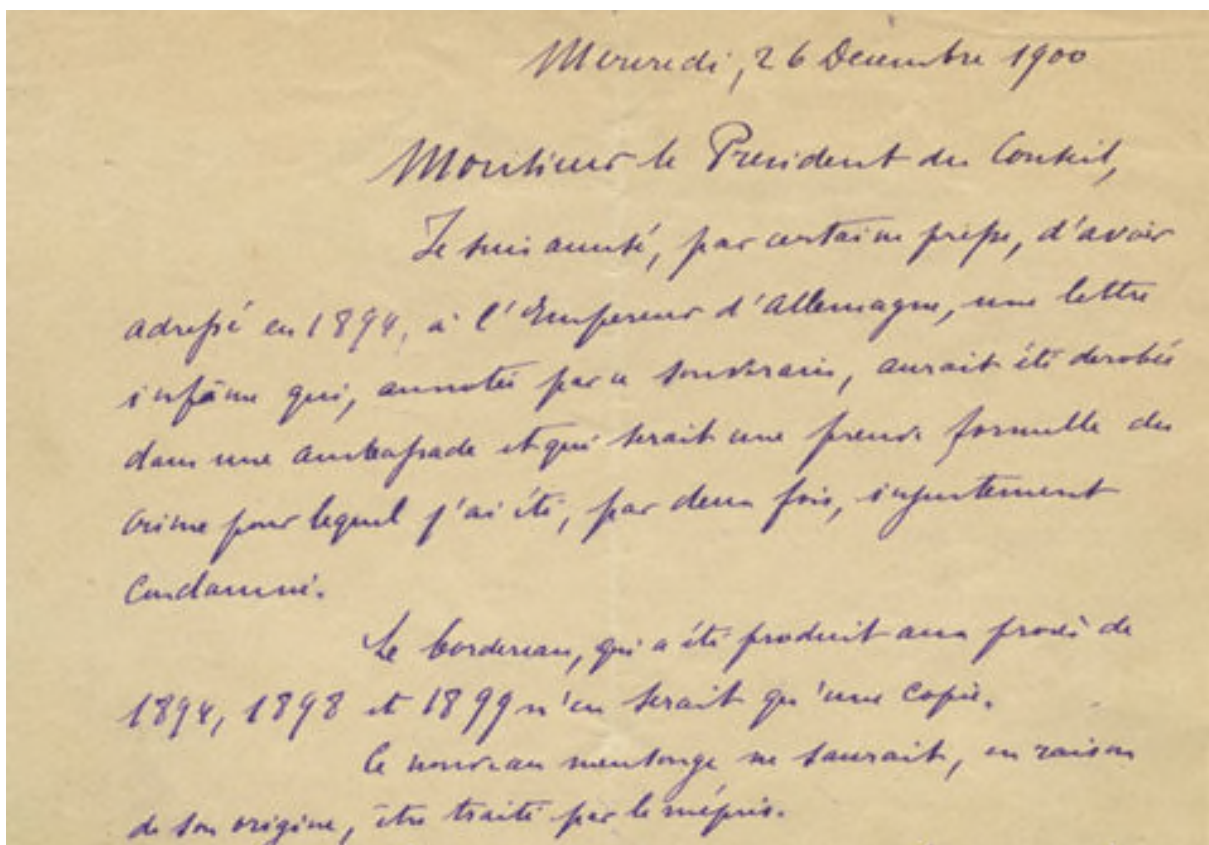 Mercredi, 26 Décembre 1900
Monsieur le Président du Conseil,
Je suis accusé, par certaine presse, d'avoir
adressé en 1894, à l'Empereur d'Allemagne, une lettre
infâme qui, annotée par ce souverain, aurait été dérobée
dans une ambassade et qui serait une preuve formelle du
crime pour lequel j'ai été, par deux fois, injustement
condamné.
Le bordereau, qui a été produit aux procès de
1894, 1898 et 1899 n'en serait qu'une copie.
Ce nouveau mensonge ne saurait, en raison
de son origine, être traité par le mépris.